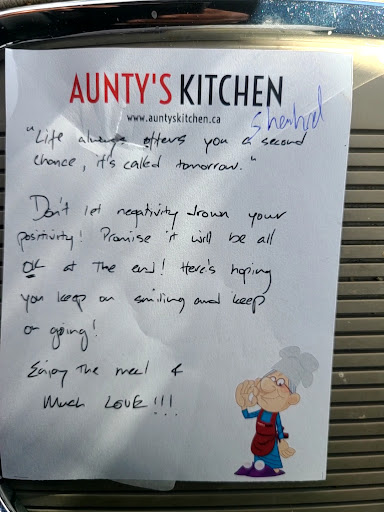 AUNTY'S KITCHEN
www.auntyskitchen.ca
"Life always offers you a second
chance, it's called tomorrow."
Don't let negativity drown your
positivity! Promise it will be all
OK at the end! Here's hoping
you keep on smiling and keep
on going!
Enjoy the meal &
Much LOVE!!!